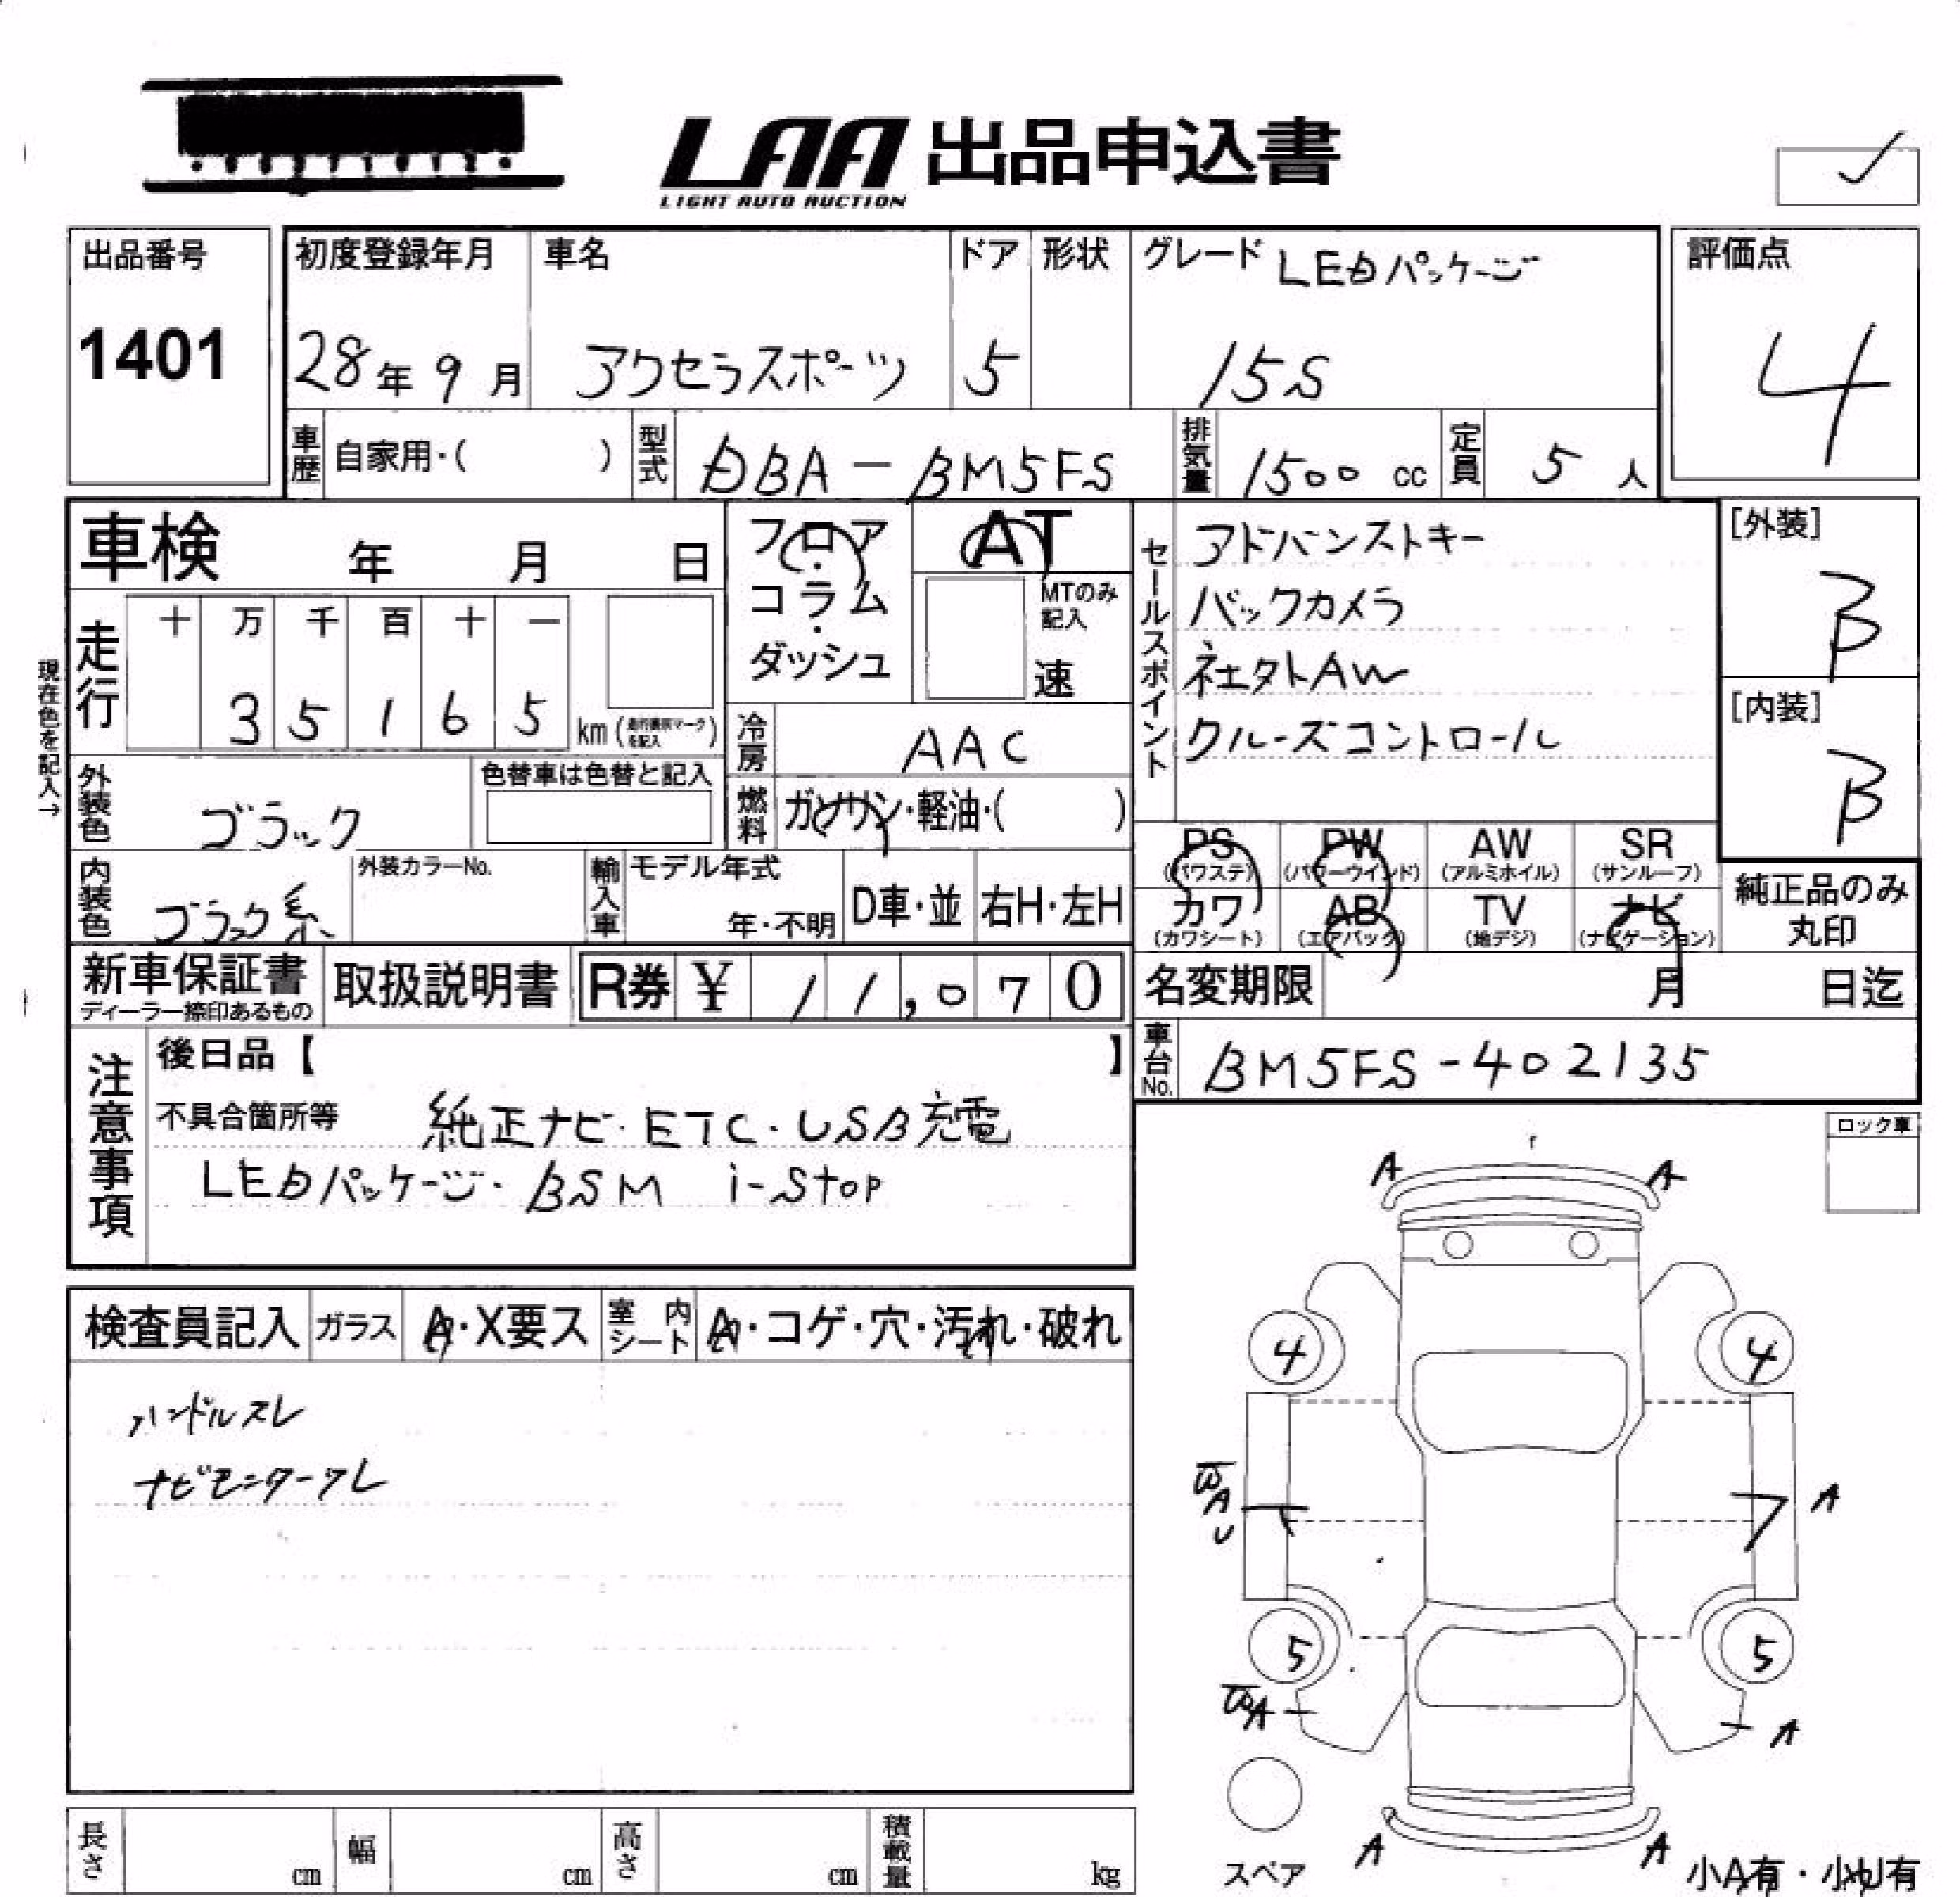 LAA 出品申込書
LIGHT AUTO AUCTION
出品番号
1401
初度登録年月
28年 9月
車名
アクセラスポーツ
ドア
5
形状
グレード LEDパッケージ
15S
評価点
4
車歴 自家用・( )
型式 DBA-BM5FS
排気量 1500 cc
定員 5 人
車検 年 月 日
フロア・コラム・ダッシュ
AT
MTのみ記入
速
セールスポイント
アドバンストキー
バックカメラ
社外AW
クルーズコントロール
[外装]
B
[内装]
B
現在色を記入→
走行
十 万 千 百 十 一
3 5 1 6 5 km (走行表示マークを記入)
冷房 AAC
燃料 ガソリン・軽油・( )
外装色 ブラック
色替車は色替と記入
内装色 ブラック系
外装カラーNo.
輸入車 モデル年式
年・不明
D車・並
右H・左H
PS (パワステ)
PW (パワーウインド)
AW (アルミホイル)
SR (サンルーフ)
カワ (カワシート)
AB (エアバック)
TV (地デジ)
ナビ (ナビゲーション)
純正品のみ
丸印
新車保証書
ディーラー捺印あるもの
取扱説明書
R券 ¥ 11,070
名変期限 月 日迄
車台No. BM5FS-402135
注意事項
後日品【 】
不具合箇所等 純正ナビ・ETC・USB充電
LEDパッケージ・BSM i-stop
ロック車
検査員記入
ガラス A・X要ス
室内シート A・コゲ・穴・汚れ・破れ
ハンドルスレ
ナビモニターワレ
A A
4 4
A
U
A
5 5
A
A
A A
スペア
小A有・小U有
長さ cm
幅 cm
高さ cm
積載量 kg